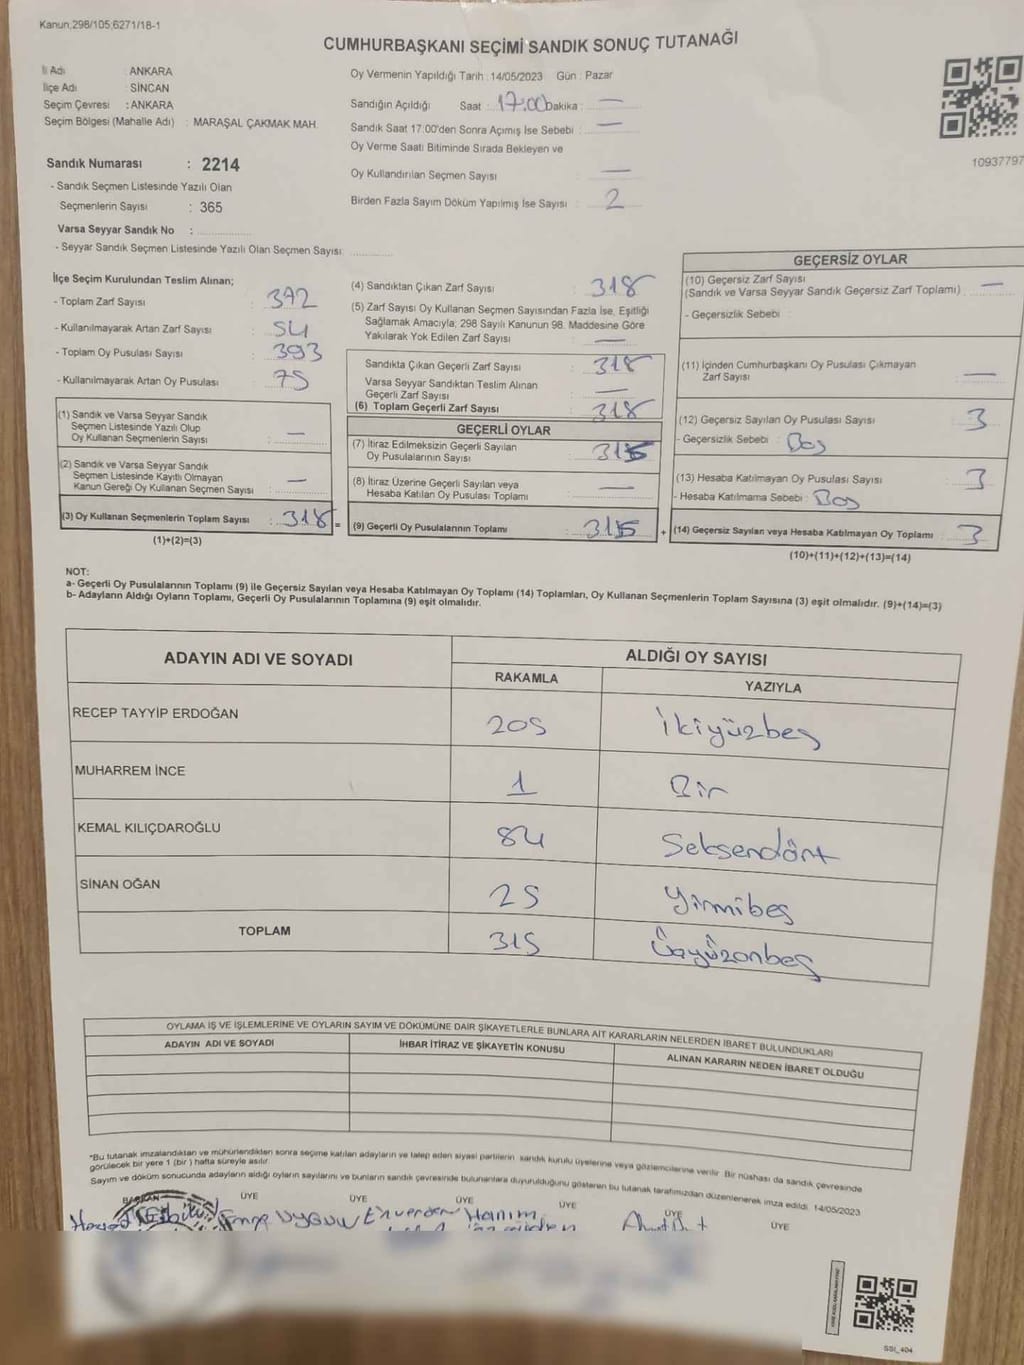 Kanun,298/105,6271/18-1
CUMHURBAŞKANI SEÇİMİ SANDIK SONUÇ TUTANAĞI
İl Adı : ANKARA
İlçe Adı : SİNCAN
Seçim Çevresi : ANKARA
Seçim Bölgesi (Mahalle Adı) : MARAŞAL ÇAKMAK MAH.
Sandık Numarası : 2214
- Sandık Seçmen Listesinde Yazılı Olan
Seçmenlerin Sayısı : 365
Varsa Seyyar Sandık No :
- Seyyar Sandık Seçmen Listesinde Yazılı Olan Seçmen Sayısı:
Oy Vermenin Yapıldığı Tarih : 14/05/2023 Gün : Pazar
Sandığın Açıldığı Saat : 17:00 Dakika : —
Sandık Saat 17:00'den Sonra Açımış İse Sebebi : —
Oy Verme Saati Bitiminde Sırada Bekleyen ve
Oy Kullandırılan Seçmen Sayısı : —
Birden Fazla Sayım Döküm Yapılmış İse Sayısı : 2
10937797
İlçe Seçim Kurulundan Teslim Alınan;
- Toplam Zarf Sayısı : 372
- Kullanılmayarak Artan Zarf Sayısı : 54
- Toplam Oy Pusulası Sayısı : 393
- Kullanılmayarak Artan Oy Pusulası : 75
(1) Sandık ve Varsa Seyyar Sandık
Seçmen Listesinde Yazılı Olup
Oy Kullanan Seçmenlerin Sayısı : —
(2) Sandık ve Varsa Seyyar Sandık
Seçmen Listesinde Kayıtlı Olmayan
Kanun Gereği Oy Kullanan Seçmen Sayısı : —
(3) Oy Kullanan Seçmenlerin Toplam Sayısı : 318 =
(1)+(2)=(3)
(4) Sandıktan Çıkan Zarf Sayısı : 318
(5) Zarf Sayısı Oy Kullanan Seçmen Sayısından Fazla İse, Eşitliği
Sağlamak Amacıyla; 298 Sayılı Kanunun 98. Maddesine Göre
Yakılarak Yok Edilen Zarf Sayısı : —
Sandıkta Çıkan Geçerli Zarf Sayısı : 318
Varsa Seyyar Sandıktan Teslim Alınan
Geçerli Zarf Sayısı : —
(6) Toplam Geçerli Zarf Sayısı : 318
GEÇERLİ OYLAR
(7) İtiraz Edilmeksizin Geçerli Sayılan
Oy Pusulalarının Sayısı : 315
(8) İtiraz Üzerine Geçerli Sayılan veya
Hesaba Katılan Oy Pusulası Toplamı : —
(9) Geçerli Oy Pusulalarının Toplamı : 315 +
GEÇERSİZ OYLAR
(10) Geçersiz Zarf Sayısı
(Sandık ve Varsa Seyyar Sandık Geçersiz Zarf Toplamı) : —
- Geçersizlik Sebebi :
(11) İçinden Cumhurbaşkanı Oy Pusulası Çıkmayan
Zarf Sayısı : —
(12) Geçersiz Sayılan Oy Pusulası Sayısı : 3
- Geçersizlik Sebebi : Boş
(13) Hesaba Katılmayan Oy Pusulası Sayısı : 3
- Hesaba Katılmama Sebebi : Boş
(14) Geçersiz Sayılan veya Hesaba Katılmayan Oy Toplamı : 3
(10)+(11)+(12)+(13)=(14)
NOT:
a- Geçerli Oy Pusulalarının Toplamı (9) ile Geçersiz Sayılan veya Hesaba Katılmayan Oy Toplamı (14) Toplamları, Oy Kullanan Seçmenlerin Toplam Sayısına (3) eşit olmalıdır. (9)+(14)=(3)
b- Adayların Aldığı Oyların Toplamı, Geçerli Oy Pusulalarının Toplamına (9) eşit olmalıdır.
ADAYIN ADI VE SOYADI ALDIĞI OY SAYISI
RAKAMLA YAZIYLA
RECEP TAYYİP ERDOĞAN 205 İkiyüzbeş
MUHARREM İNCE 1 Bir
KEMAL KILIÇDAROĞLU 84 Seksendört
SİNAN OĞAN 25 Yirmibeş
TOPLAM 315 Üçyüzonbeş
OYLAMA İŞ VE İŞLEMLERİNE VE OYLARIN SAYIM VE DÖKÜMÜNE DAİR ŞİKAYETLERLE BUNLARA AİT KARARLARIN NELERDEN İBARET BULUNDUKLARI
ADAYIN ADI VE SOYADI İHBAR İTİRAZ VE ŞİKAYETİN KONUSU ALINAN KARARIN NEDEN İBARET OLDUĞU
*Bu tutanak imzalandıktan ve mühürlendikten sonra seçime katılan adayların ve talep eden siyasi partilerin sandık kurulu üyelerine veya gözlemcilerine verilir. Bir nüshası da sandık çevresinde
görülecek bir yere 1 (bir ) hafta süreyle asılır.
Sayım ve döküm sonucunda adayların aldığı oyların sayılarını ve bunların sandık çevresinde bulunanlara duyurulduğunu gösteren bu tutanak tarafımızdan düzenlenerek imza edildi. 14/05/2023
BAŞKAN ÜYE ÜYE ÜYE ÜYE ÜYE ÜYE
UYGUN Hanım
SSI_404